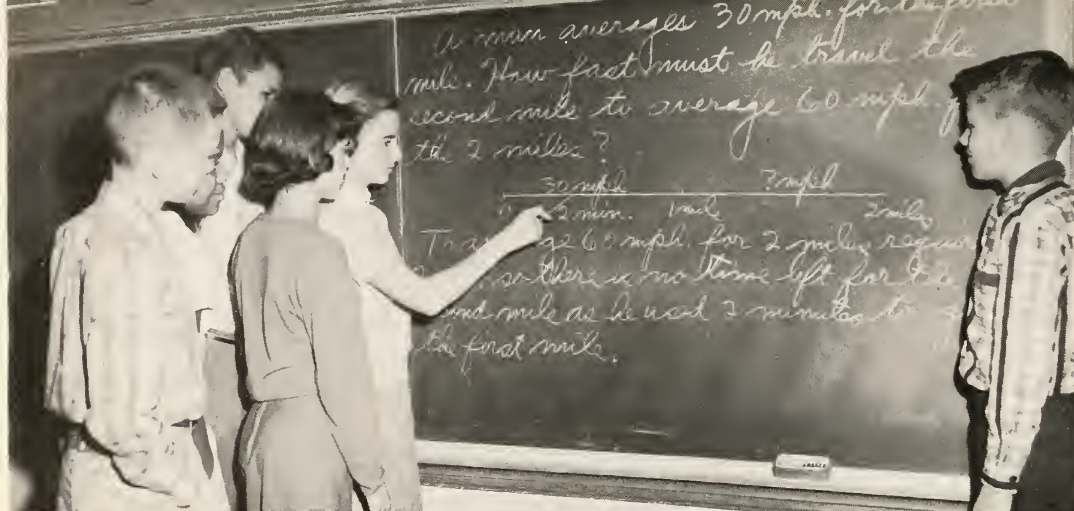 A man averages 30 mph. for the first
mile. How fast must he travel the
second mile to average 60 mph.
the 2 miles?
30 mph ? mph
2 min. 1 mile 2 miles
60 mph. for 2 miles
so there is no time left for
mile as he used 2 minutes
the first mile.